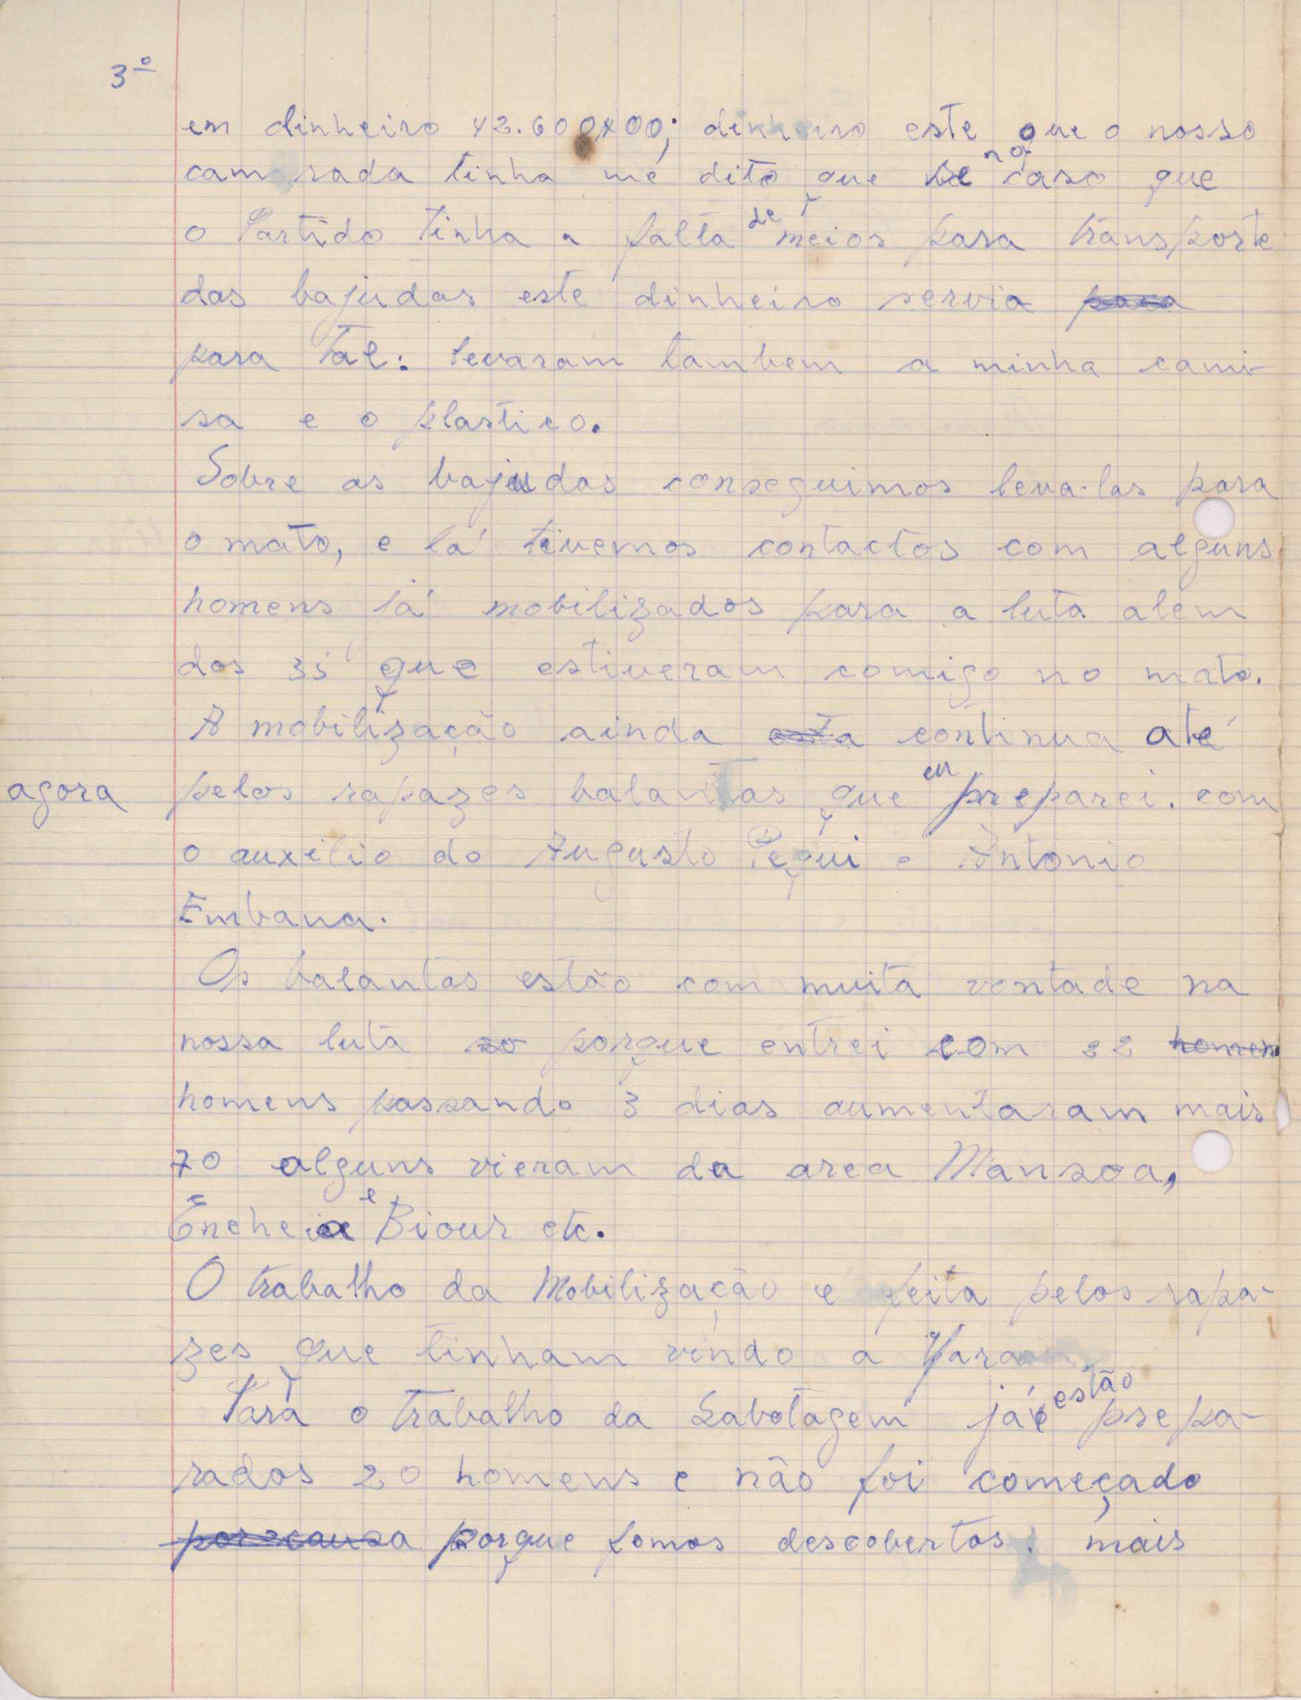 3º
em dinheiro 42.600x00; dinheiro este que o nosso
camarada tinha me dito que no caso que
o Partido tinha a falta de meios para transporte
das bajudas este dinheiro servia para
para tal: levaram tambem a minha cami-
sa e o plastico.
Sobre as bajudas conseguimos leva-las para
o mato, e lá tivemos contactos com alguns
homens lá mobilizados para a luta alem
dos 35 que estiveram comigo no mato.
A mobilização ainda esta continua até
agora pelos rapazes balantas que eu preparei. com
o auxilio do Augusto Pequi e Antonio
Embana.
Os balantas estão com muita vontade na
nossa luta so porque entrei com 32 homen
homens passando 3 dias aumentaram mais
70 alguns vieram da area Mansoa,
Encheia e Biour etc.
O trabalho da Mobilização e feita pelos rapa-
zes que tinham vindo a Yara
Para o trabalho da Sabotagem já estão prepa-
rados 20 homens e não foi começado
por causa porque fomos descobertos. mais